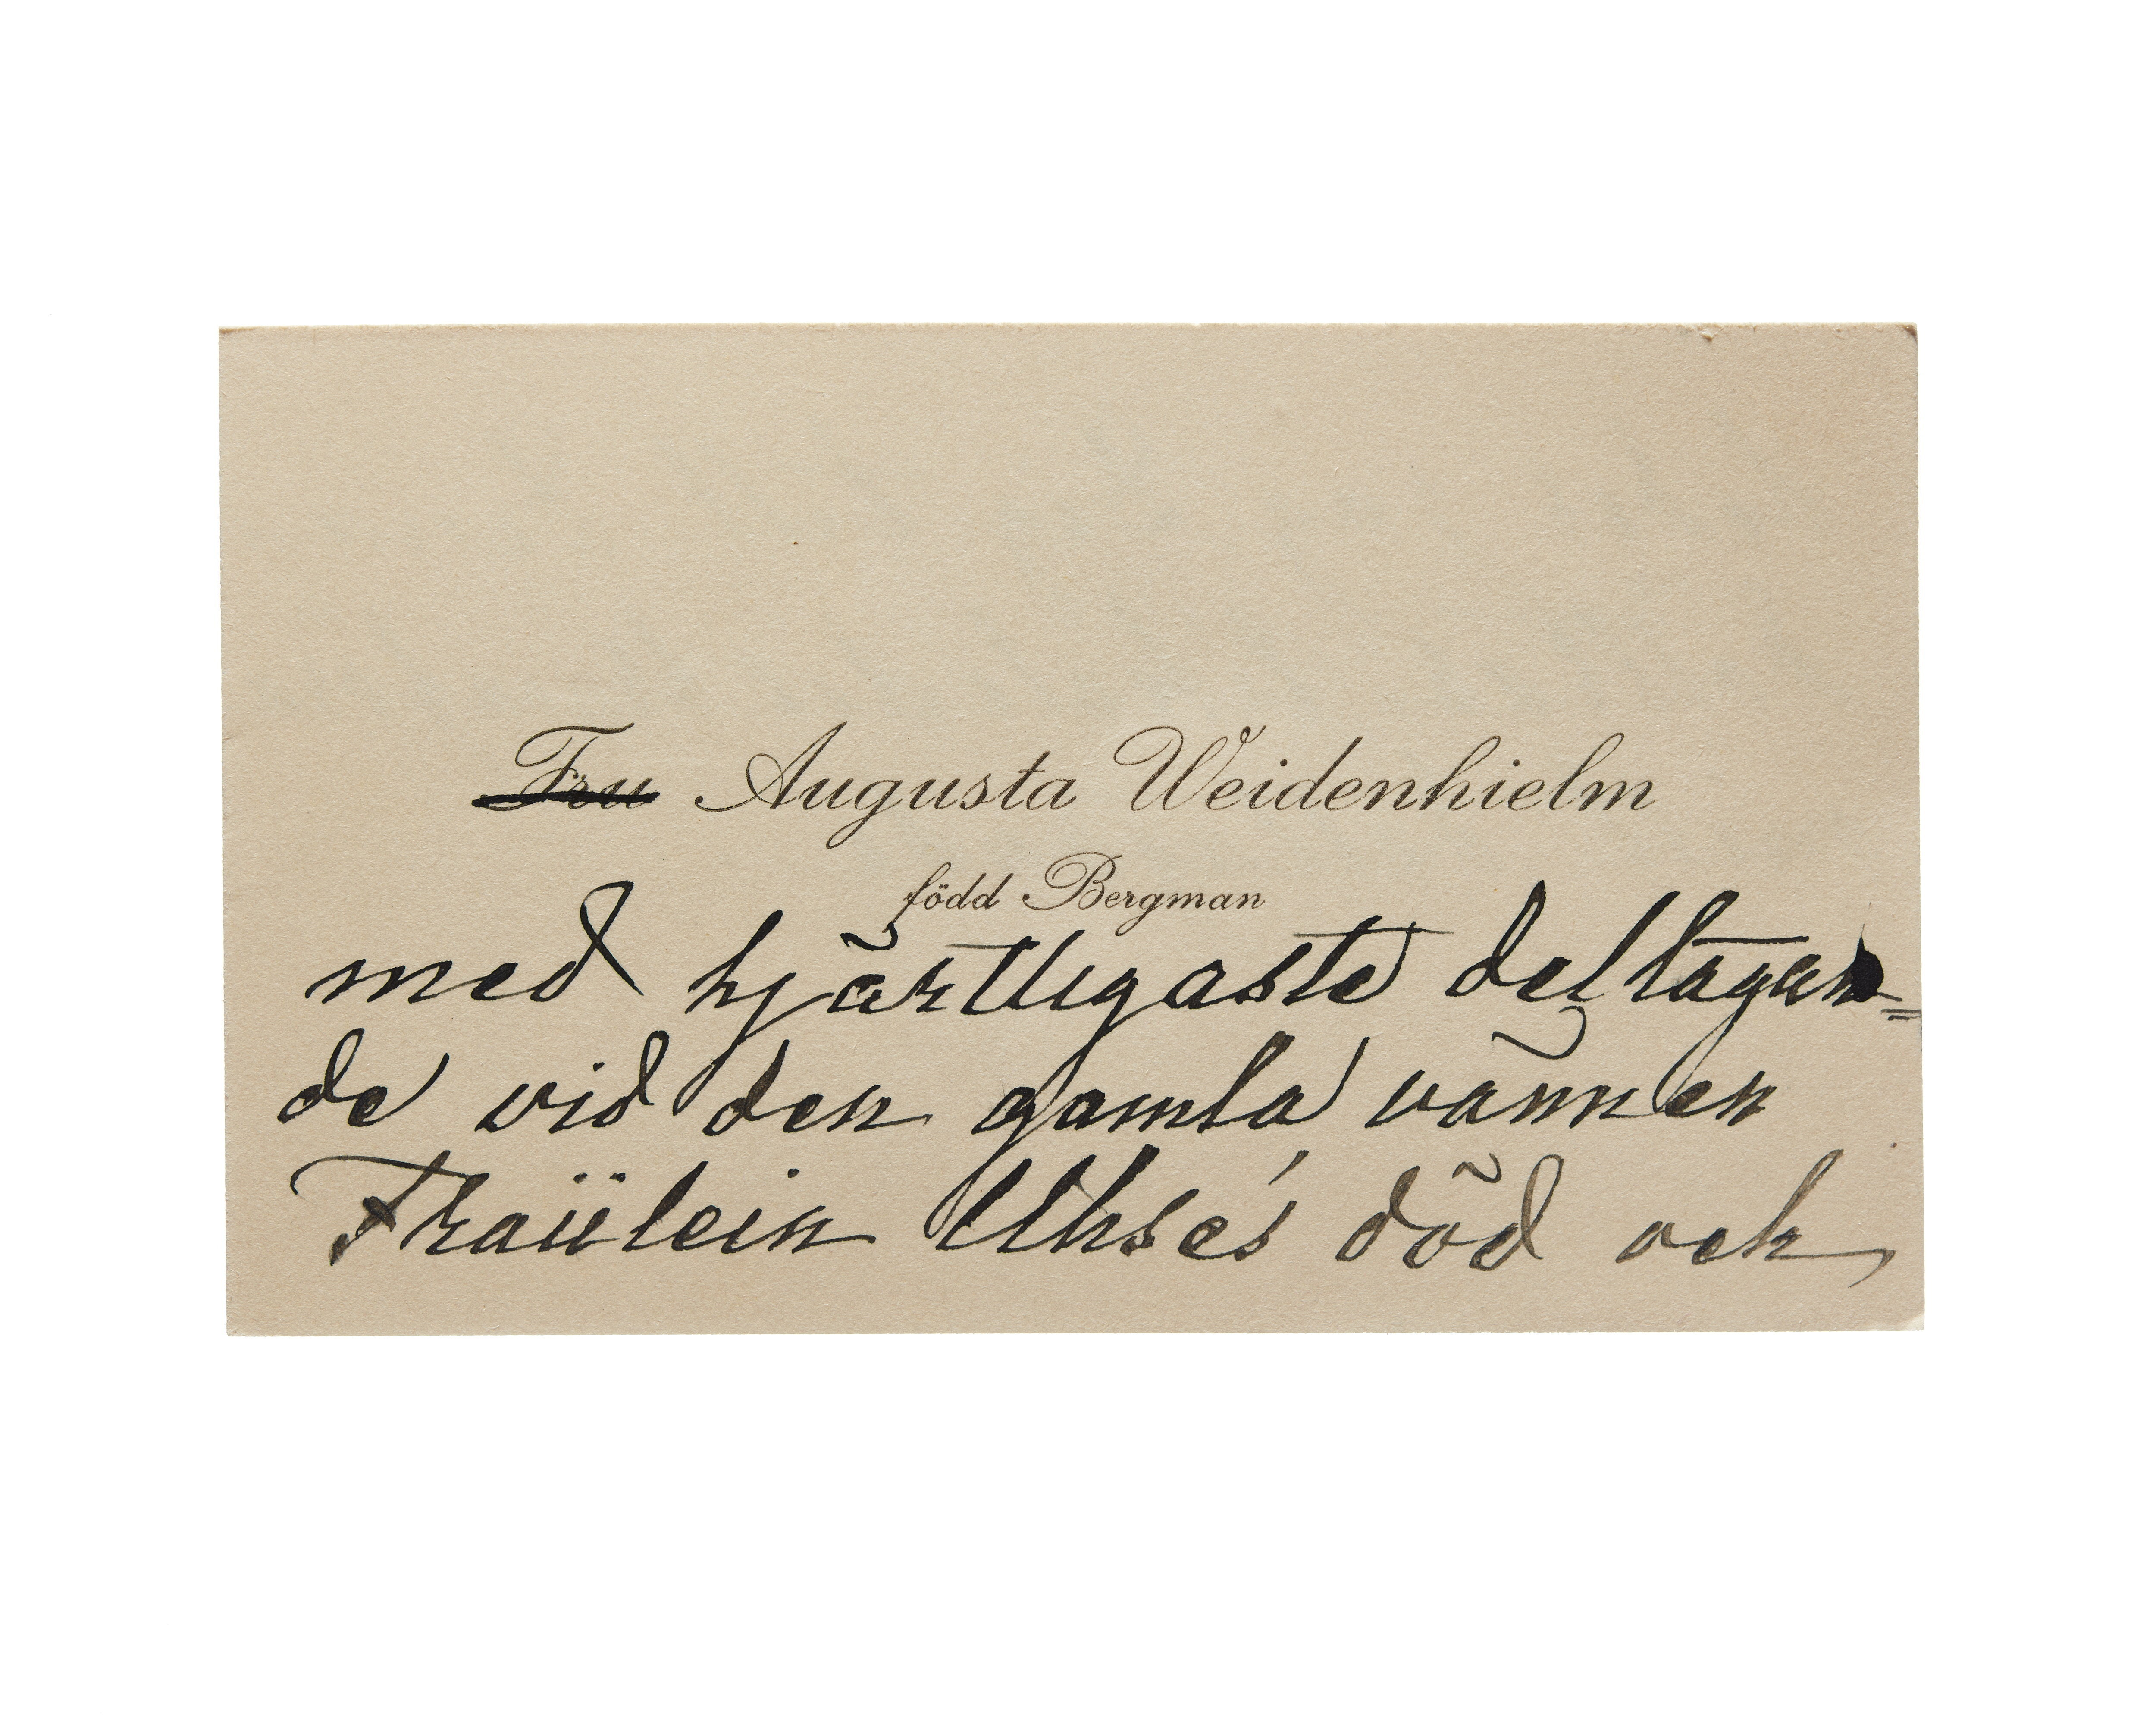 Fru Augusta Weidenhielm
född Bergman
med hjärtligaste deltagan=
de vid den gamla vännen
Fraülein Uhse's död och